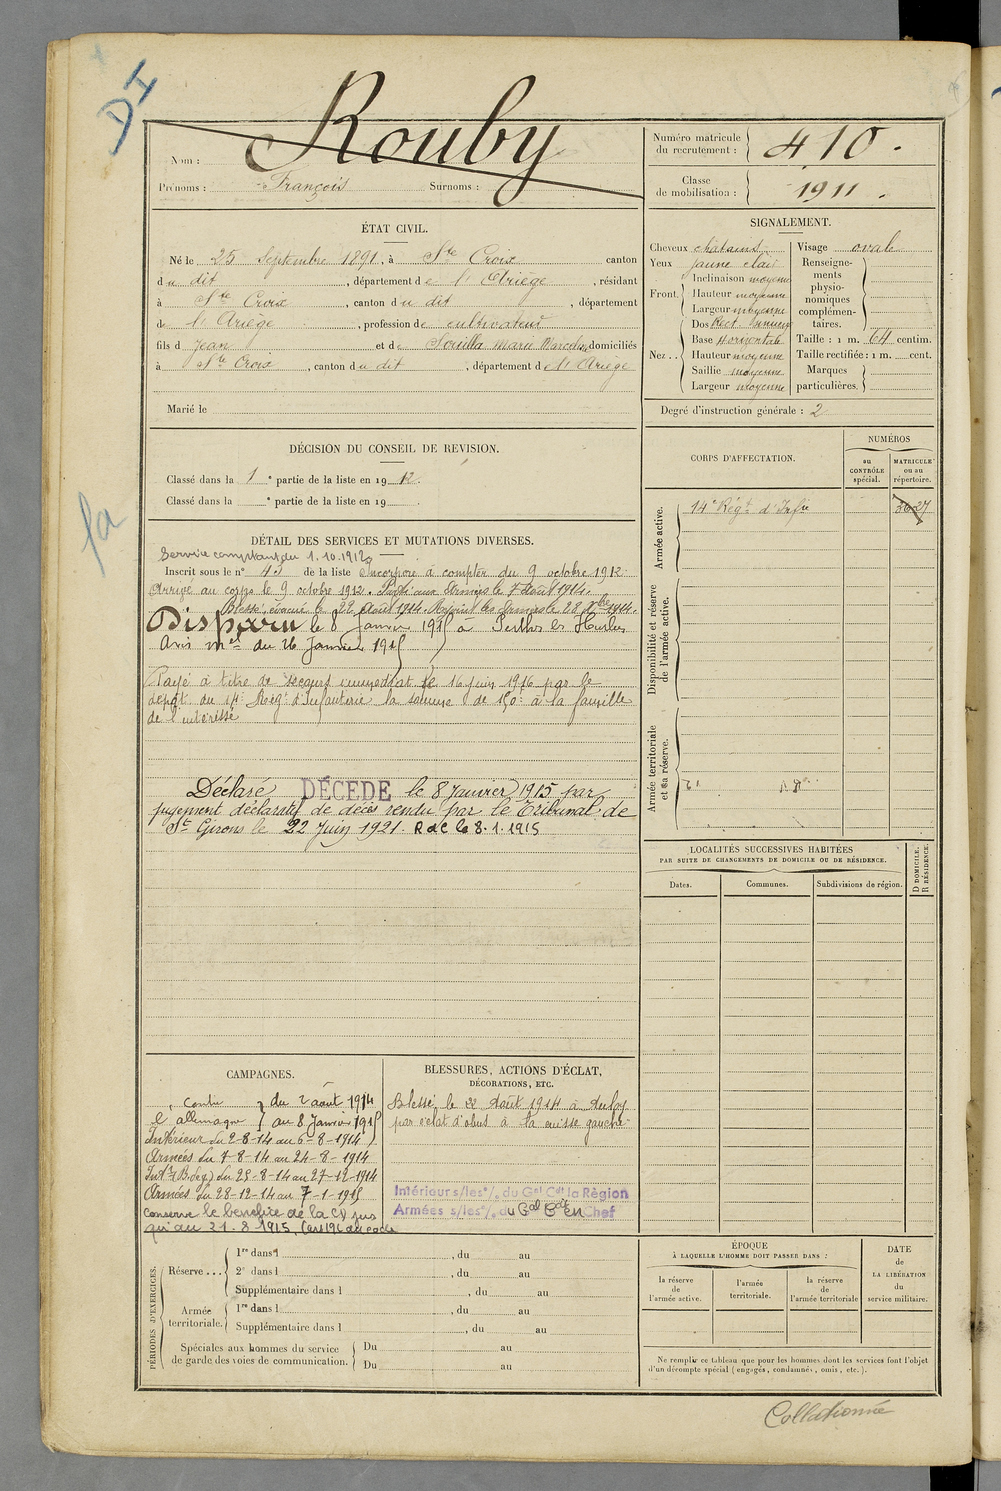 DI
Rouby
Nom :
Prénoms : François Surnoms :
Numéro matricule du recrutement : 410.
Classe de mobilisation : 1911.
ÉTAT CIVIL.
Né le 25 Septembre 1891, à Ste Croix canton
du dit, département de l'Ariège, résidant
à Ste Croix, canton du dit, département
de l'Ariège, profession de cultivateur
fils d Jean et de Souilla Marie Marceline domiciliés
à Ste Croix, canton du dit, département d l'Ariège
Marié le
SIGNALEMENT.
Cheveux châtains
Yeux jaune clair
Front. Inclinaison moyenne
Hauteur moyenne
Largeur moyenne
Nez.. Dos Rect. sinueux
Base Horizontale
Hauteur moyenne
Saillie moyenne
Largeur moyenne
Visage ovale
Renseignements physionomiques complémentaires.
Taille : 1 m. 64 centim.
Taille rectifiée : 1 m. cent.
Marques particulières.
Degré d'instruction générale : 2
DÉCISION DU CONSEIL DE REVISION.
Classé dans la 1 e partie de la liste en 1912.
Classé dans la e partie de la liste en 19
CORPS D'AFFECTATION.
NUMÉROS
au CONTRÔLE spécial.
MATRICULE ou au répertoire.
Armée active.
14e Régt d'Infie
3627
Disponibilité et réserve de l'armée active.
Armée territoriale et sa réserve.
la
DÉTAIL DES SERVICES ET MUTATIONS DIVERSES.
Service comptant du 1.10.1912
Inscrit sous le n° 43 de la liste Incorporé à compter du 9 octobre 1912.
Arrivé au corps le 9 octobre 1912. Parti aux Armées le 7 Août 1914.
Blessé, évacué le 22 Août 1914. Rejoint les Armées le 28 Xbre 1914.
Disparu le 8 Janvier 1915 à Perthes les Hurlus
Avis mel du 26 Janvier 1915
Payé à titre de secours immédiat le 16 juin 1916 par le
dépôt du 14e Régt d'Infanterie la somme de 150f à la famille
de l'intéressé
Déclaré DÉCÉDÉ le 8 Janvier 1915 par
jugement déclaratif de décès rendu par le Tribunal de
St Girons le 22 Juin 1921. R d C le 8.1.1915
LOCALITÉS SUCCESSIVES HABITÉES
PAR SUITE DE CHANGEMENTS DE DOMICILE OU DE RÉSIDENCE.
Dates.
Communes.
Subdivisions de région.
D DOMICILE.
R RÉSIDENCE.
CAMPAGNES.
Contre du 2 août 1914
l'allemagne au 8 Janvier 1915
Intérieur du 2-8-14 au 6-8-1914
Armées du 7-8-14 au 24-8-1914
Intr (B. de g.) du 25-8-14 au 27-12-1914
Armées du 28-12-14 au 7-1-1915
conserve le bénéfice de la CD jus
qu'au 21.8.1915. (art 196 du code
BLESSURES, ACTIONS D'ÉCLAT,
DÉCORATIONS, ETC.
Blessé le 22 Août 1914 à Auloy
par éclat d'obus à la cuisse gauche
Intérieur s/les °/. du Gal Cdt la Région
Armées s/les °/. du Gal Cdt en Chef
PÉRIODES D'EXERCICES.
Réserve ... 1re dans l , du au
2e dans l , du au
Supplémentaire dans l , du au
Armée territoriale. 1re dans l , du au
Supplémentaire dans l , du au
Spéciales aux hommes du service de garde des voies de communication. Du au
Du au
ÉPOQUE
À LAQUELLE L'HOMME DOIT PASSER DANS :
la réserve de l'armée active.
l'armée territoriale.
la réserve de l'armée territoriale
DATE de LA LIBÉRATION du service militaire.
Ne remplir ce tableau que pour les hommes dont les services font l'objet
d'un décompte spécial (engagés, condamnés, omis, etc.).
Collationné